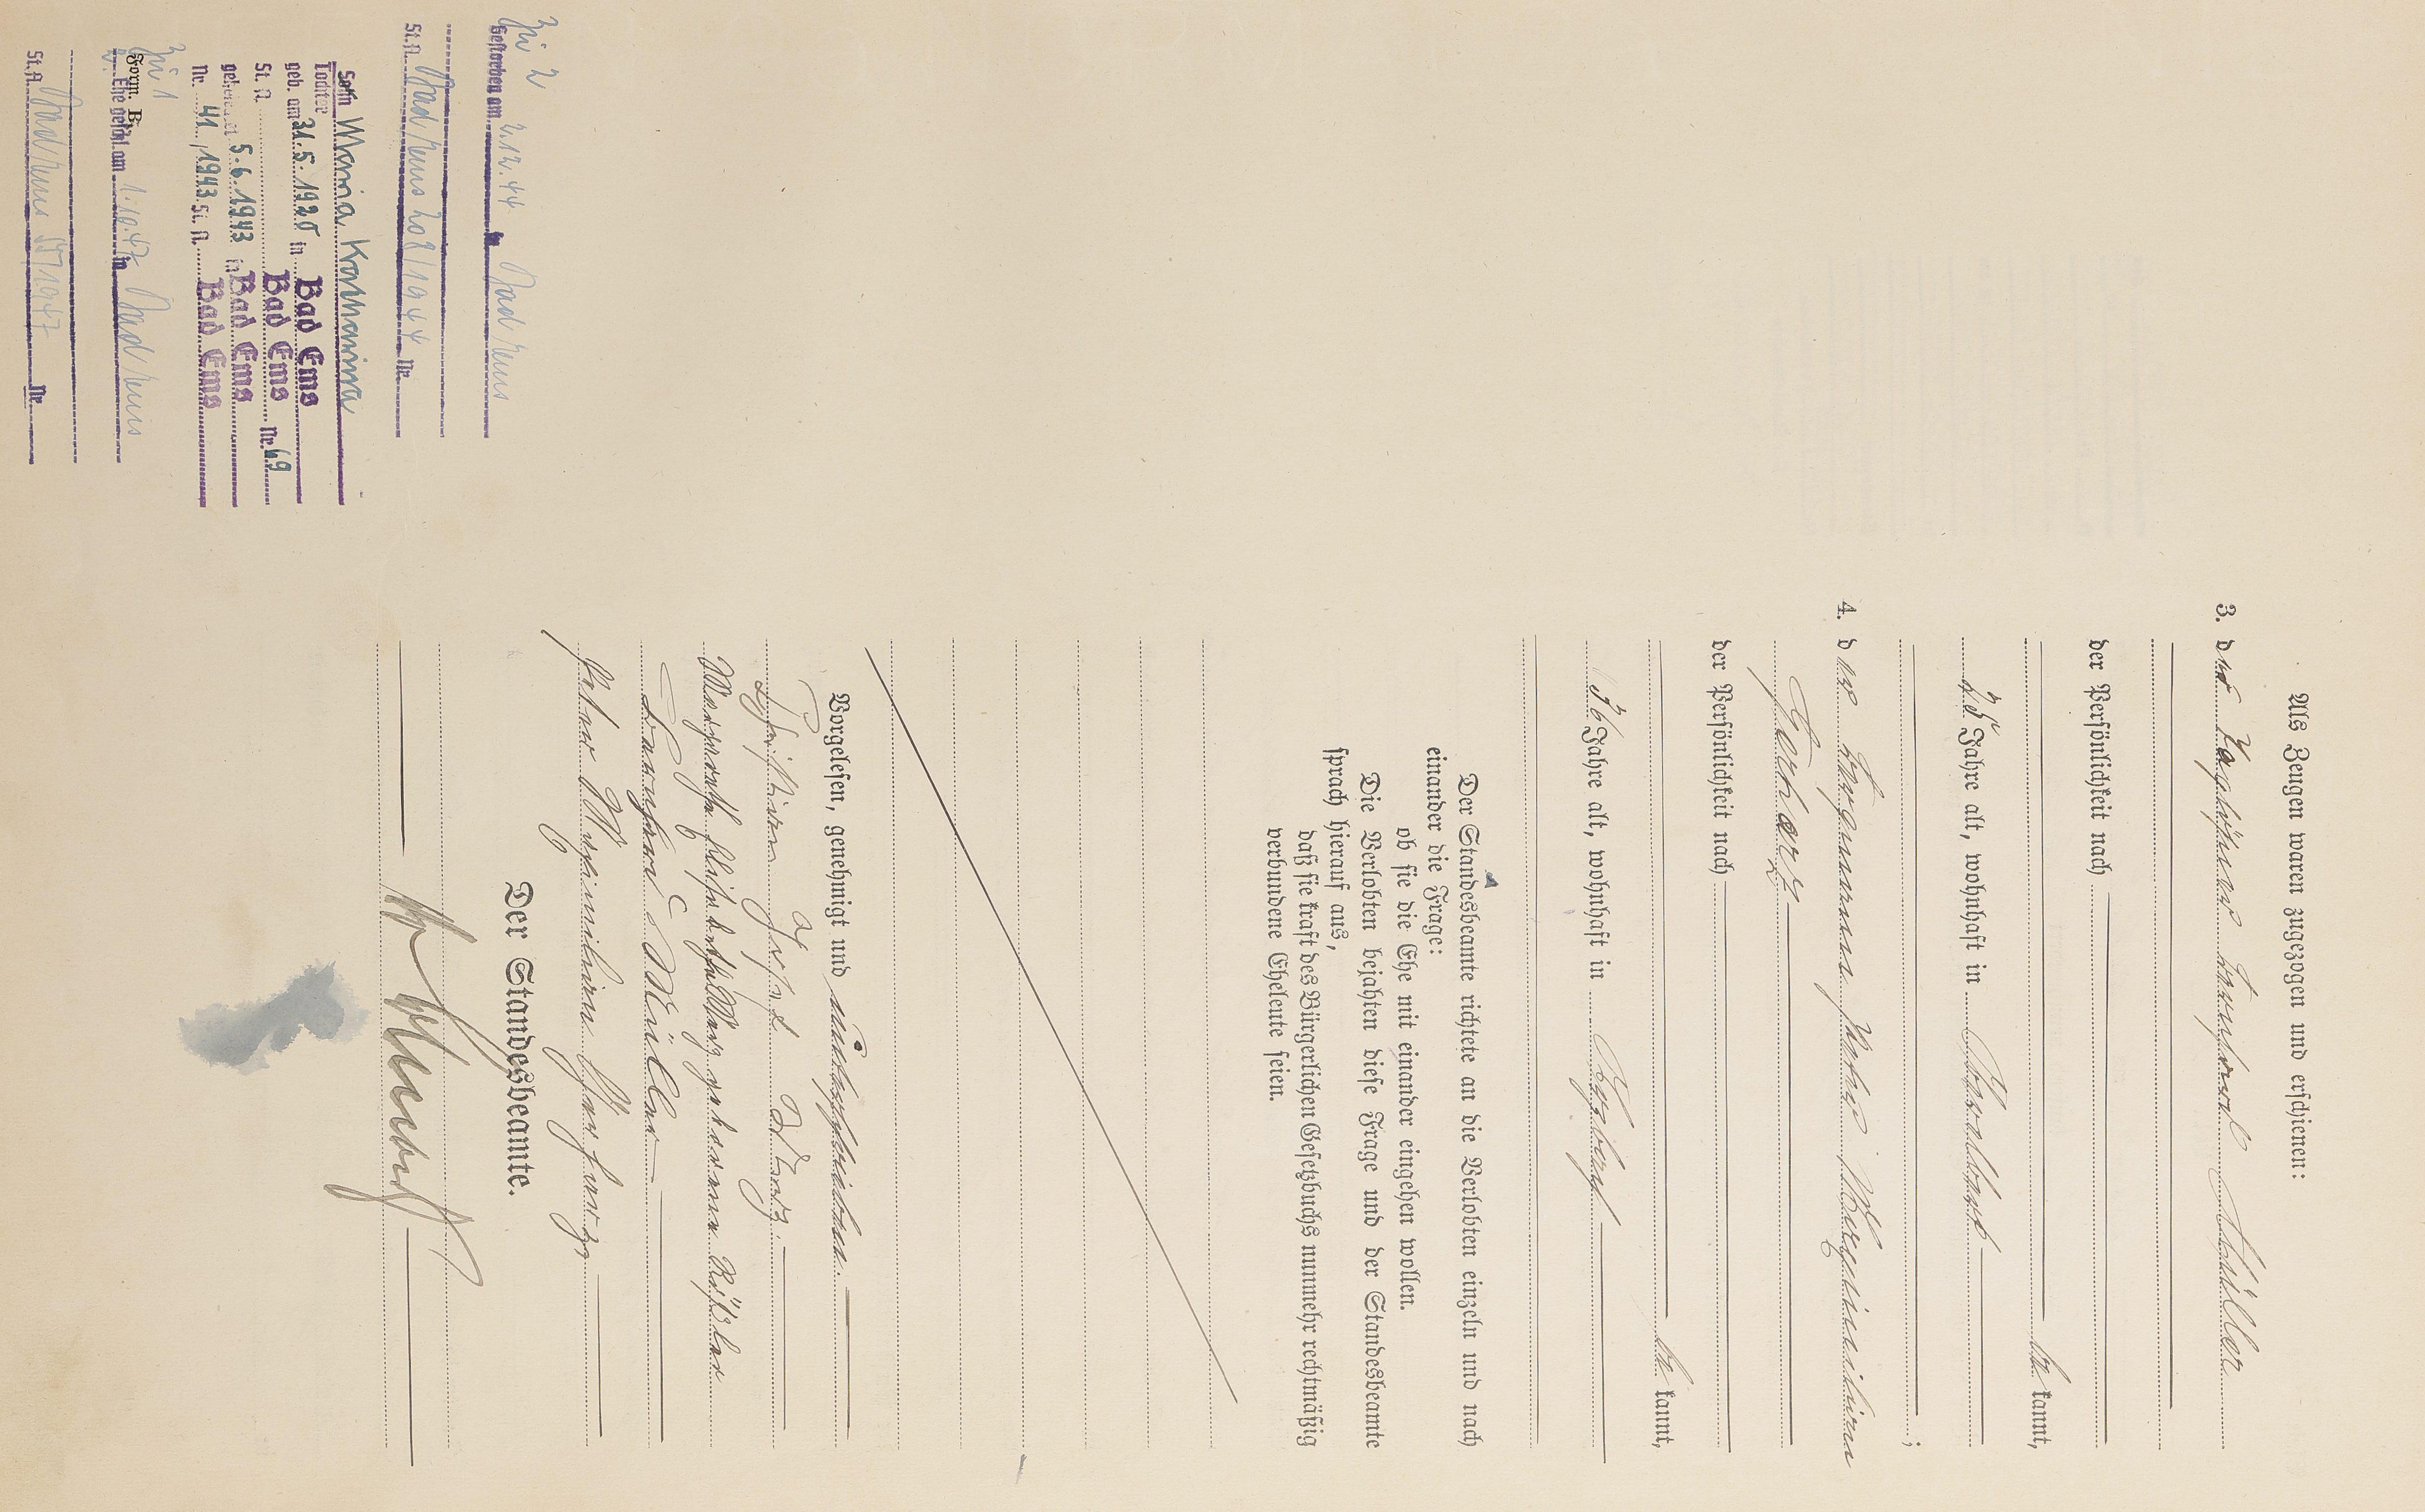 Als Zeugen waren zugezogen und erschienen:
3. der Tagelöhner Leonhard Müller
der Persönlichkeit nach
be kannt,
25 Jahre alt, wohnhaft in
;
4. der Bergmann Peter Maximilian
der Persönlichkeit nach
be kannt,
36 Jahre alt, wohnhaft in
Der Standesbeamte richtete an die Verlobten einzeln und nach
einander die Frage:
ob sie die Ehe mit einander eingehen wollen.
Die Verlobten bejahten diese Frage und der Standesbeamte
sprach hierauf aus,
daß sie kraft des Bürgerlichen Gesetzbuchs nunmehr rechtmäßig
verbundene Eheleute seien.
Vorgelesen, genehmigt und unterschrieben.
Christian Josef
Margaretha Elisabetha geborene
Leonhard Müller
Peter Maximilian
Der Standesbeamte.
Zu 2
Gestorben am 2.12.44 in Bad Ems
St.A. Bad Ems 208/1944 Nr.
Sohn Maria Katharina
Tochter
geb. am 31.5.1925 in Bad Ems
St. A. Bad Ems Nr. 69
geheiratet 5.6.1943 in Bad Ems
Nr. 41/1943 St. A. Bad Ems
Zu 1
Form. B.
2. Ehe geschl. am 1.10.47 in Bad Ems
St.A. Bad Ems 57/1947 Nr.